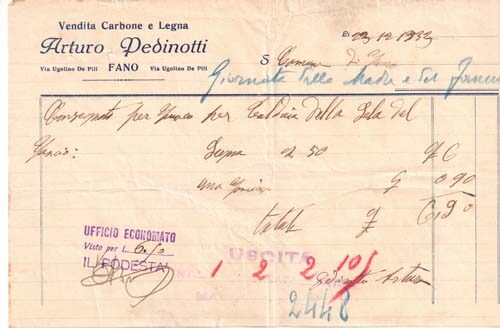 Vendita Carbone e Legna
Arturo Pedinotti
Via Ugolino De Pili FANO Via Ugolino De Pili
23 12 1933
S. Comune di Fano
Giornata della Madre e del
Consegnato per per Caldaia della Sala del
Legna 2.50 £ 6
una £ 0.90
totale £ 6,90
UFFICIO ECONOMATO
Visto per L.
IL PODESTA'
USCITA
1 2 2 10
2448